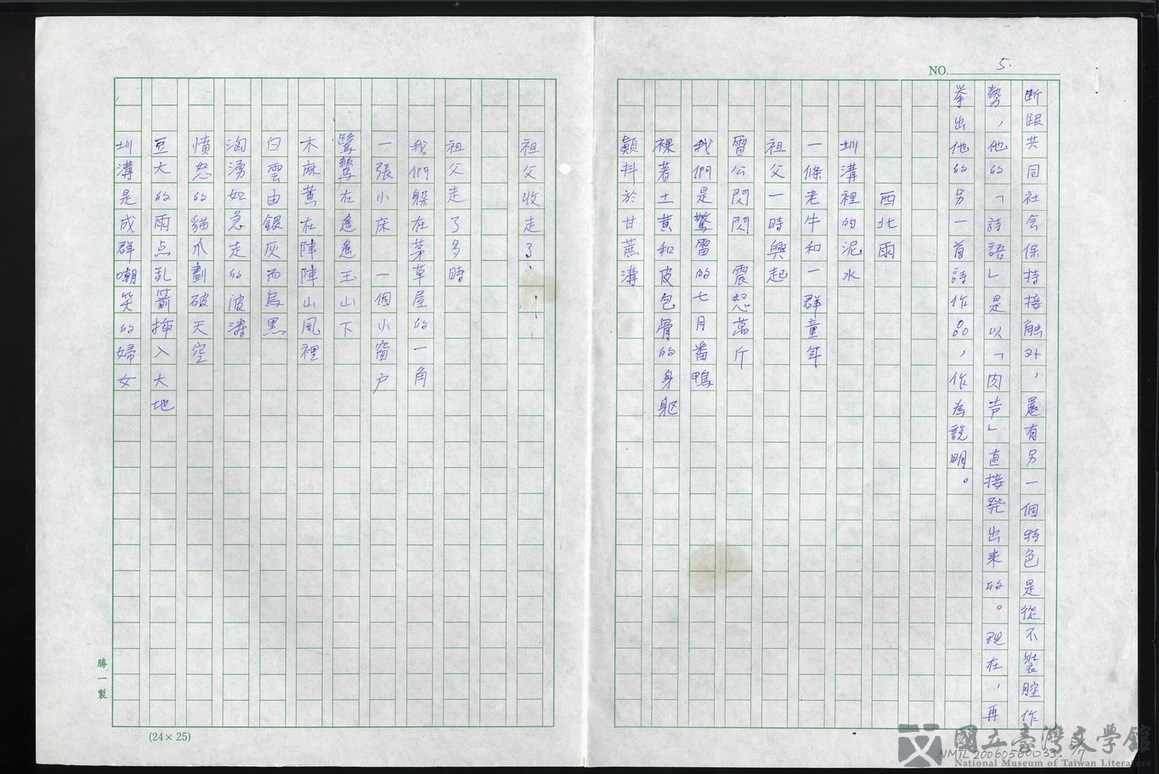 NO. 5.
断跟共同社会保持接触外，還有另一個特色是從不裝腔作
勢，他的「詩語」是以「肉声」直接発出来的。現在，再
挙出他的另一首詩作品，作為説明。
西北雨
圳溝裡的泥水
一條老牛和一群童年
祖父一時興起
雷公閃閃　震怒萬斤
我們是驚雷的七月番鴨
裸著土黄和皮包骨的身躯
顛抖於甘蔗溝
祖父收走了……
祖父走了多時
我們躲在茅草屋的一角
一張小床　一個小窗户
鷺鷥在遙遙玉山下
木麻黄在陣陣山風裡
白雲由銀灰而烏黑
洶湧如急走的波濤
憤怒的貓爪劃破天空
豆大的雨点乱箭挿入大地
圳溝是成群嘲笑的婦女
勝一製
(24×25)
國立臺灣文學館
National Museum of Taiwan Literature